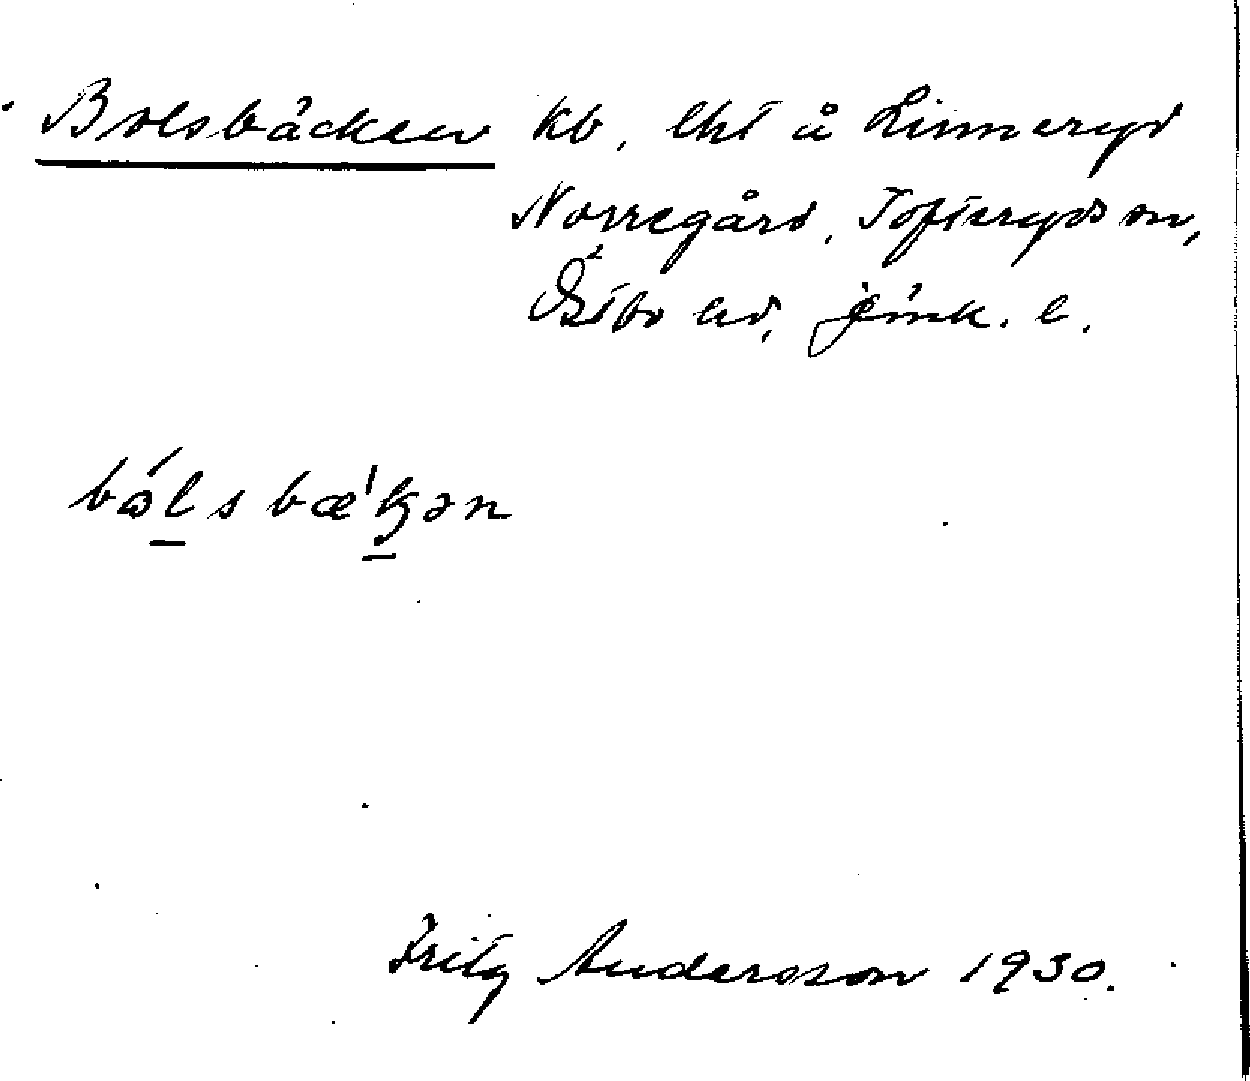 Bolsbäcken kb, lht å Linneryd
Norregård, Tofteryds sn,
Östbo hd, jönk. l.
bólsbæ'kən
Fritz Andersson 1930.